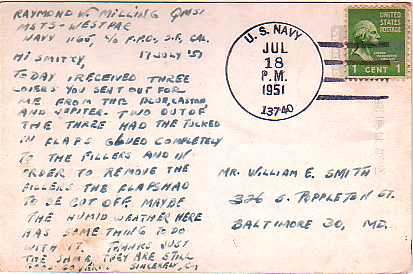 RAYMOND V MILLING QMS1
MSTS-WESTPAC
NAVY 1165, C/O F.P.O., S.F., CAL.
17 JULY '51
HI SMITTY,
TODAY I RECEIVED THREE
COVERS YOU SENT OUT FOR
ME FROM THE ALUDRA, CASTOR
AND JUPITER. TWO OUT OF
THE THREE HAD THE TUCKED
IN FLAPS GLUED COMPLETELY
TO THE FILLERS AND IN
ORDER TO REMOVE THE
FILLERS THE FLAPS HAD
TO BE CUT OFF. MAYBE
THE HUMID WEATHER HERE
HAS SOMETHING TO DO
WITH IT. THANKS JUST
THE SAME, THEY ARE STILL
GOOD COVERS. SINCERELY,
U. S. NAVY
JUL
18
P.M.
1951
13740
UNITED
STATES
POSTAGE
1 CENT 1
MR. WILLIAM E. SMITH
326 S. POPPLETON ST.
BALTIMORE 30, MD.